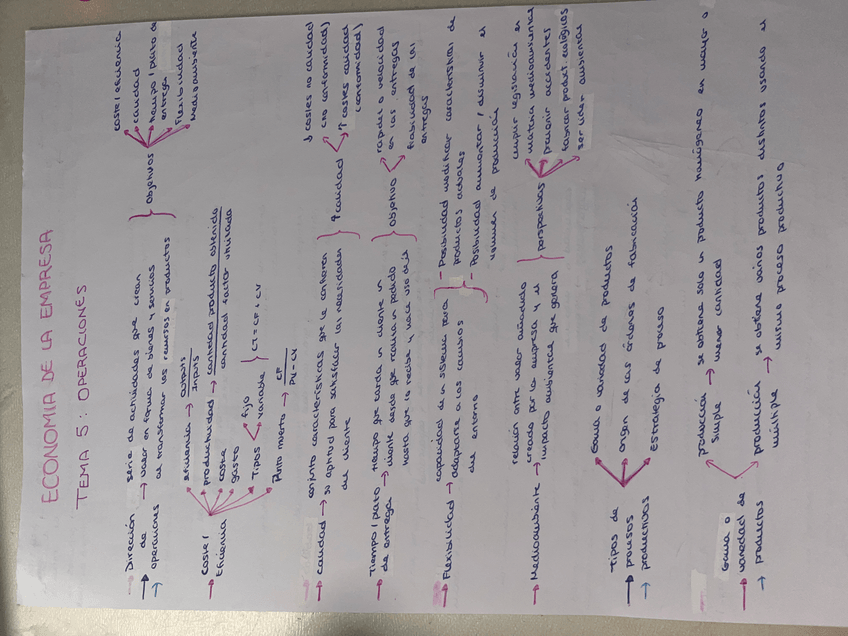 ECONOMIA DE LA EMPRESA
TEMA 5: OPERACIONES
Dirección de operaciones → serie de actividades que crean
valor en forma de bienes y servicios
al transformar los recursos en productos
objetivos
coste/eficiencia
calidad
tiempo/plazo de
entrega
Flexibilidad
Medioambiente
Coste/
Eficiencia
eficiencia → outputs
inputs
productividad → cantidad producto obtenido
cantidad factor utilizada
coste
gasto
Tipos
fijo
variable
CT = CF + CV
Punto muerto → CF
PV - CV
calidad → conjunto características que le confieren
su aptitud para satisfacer las necesidades
del cliente
↑ calidad
↓ costes no calidad
(no conformidad)
↑ costes calidad
(conformidad)
Tiempo/plazo
de entrega
tiempo que tarda un cliente un
cliente desde que realiza un pedido
hasta que lo recibe y hace uso de él
objetivo
rapidez o velocidad
en las entregas
fiabilidad de las
entregas
Flexibilidad → capacidad de un sistema para
adaptarse a los cambios
del entorno
- Posibilidad modificar características de
productos actuales
- Posibilidad aumentar / disminuir el
volumen de producción
Medioambiente → relación entre valor añadido
creado por la empresa y el
impacto ambiental que genera
perspectivas
cumplir legislación en
materia medioambiental
prevenir accidentes
fabricar product. ecológicos
ser líder ambiental
Tipos de
procesos
productivos
Gama o variedad de productos
origen de las órdenes de fabricación
Estrategia de proceso
Gama o
variedad de
productos
producción
simple
se obtiene solo un producto homogéneo en mayor o
menor cantidad
producción
múltiple
se obtiene varios productos distintos usando el
mismo proceso productivo